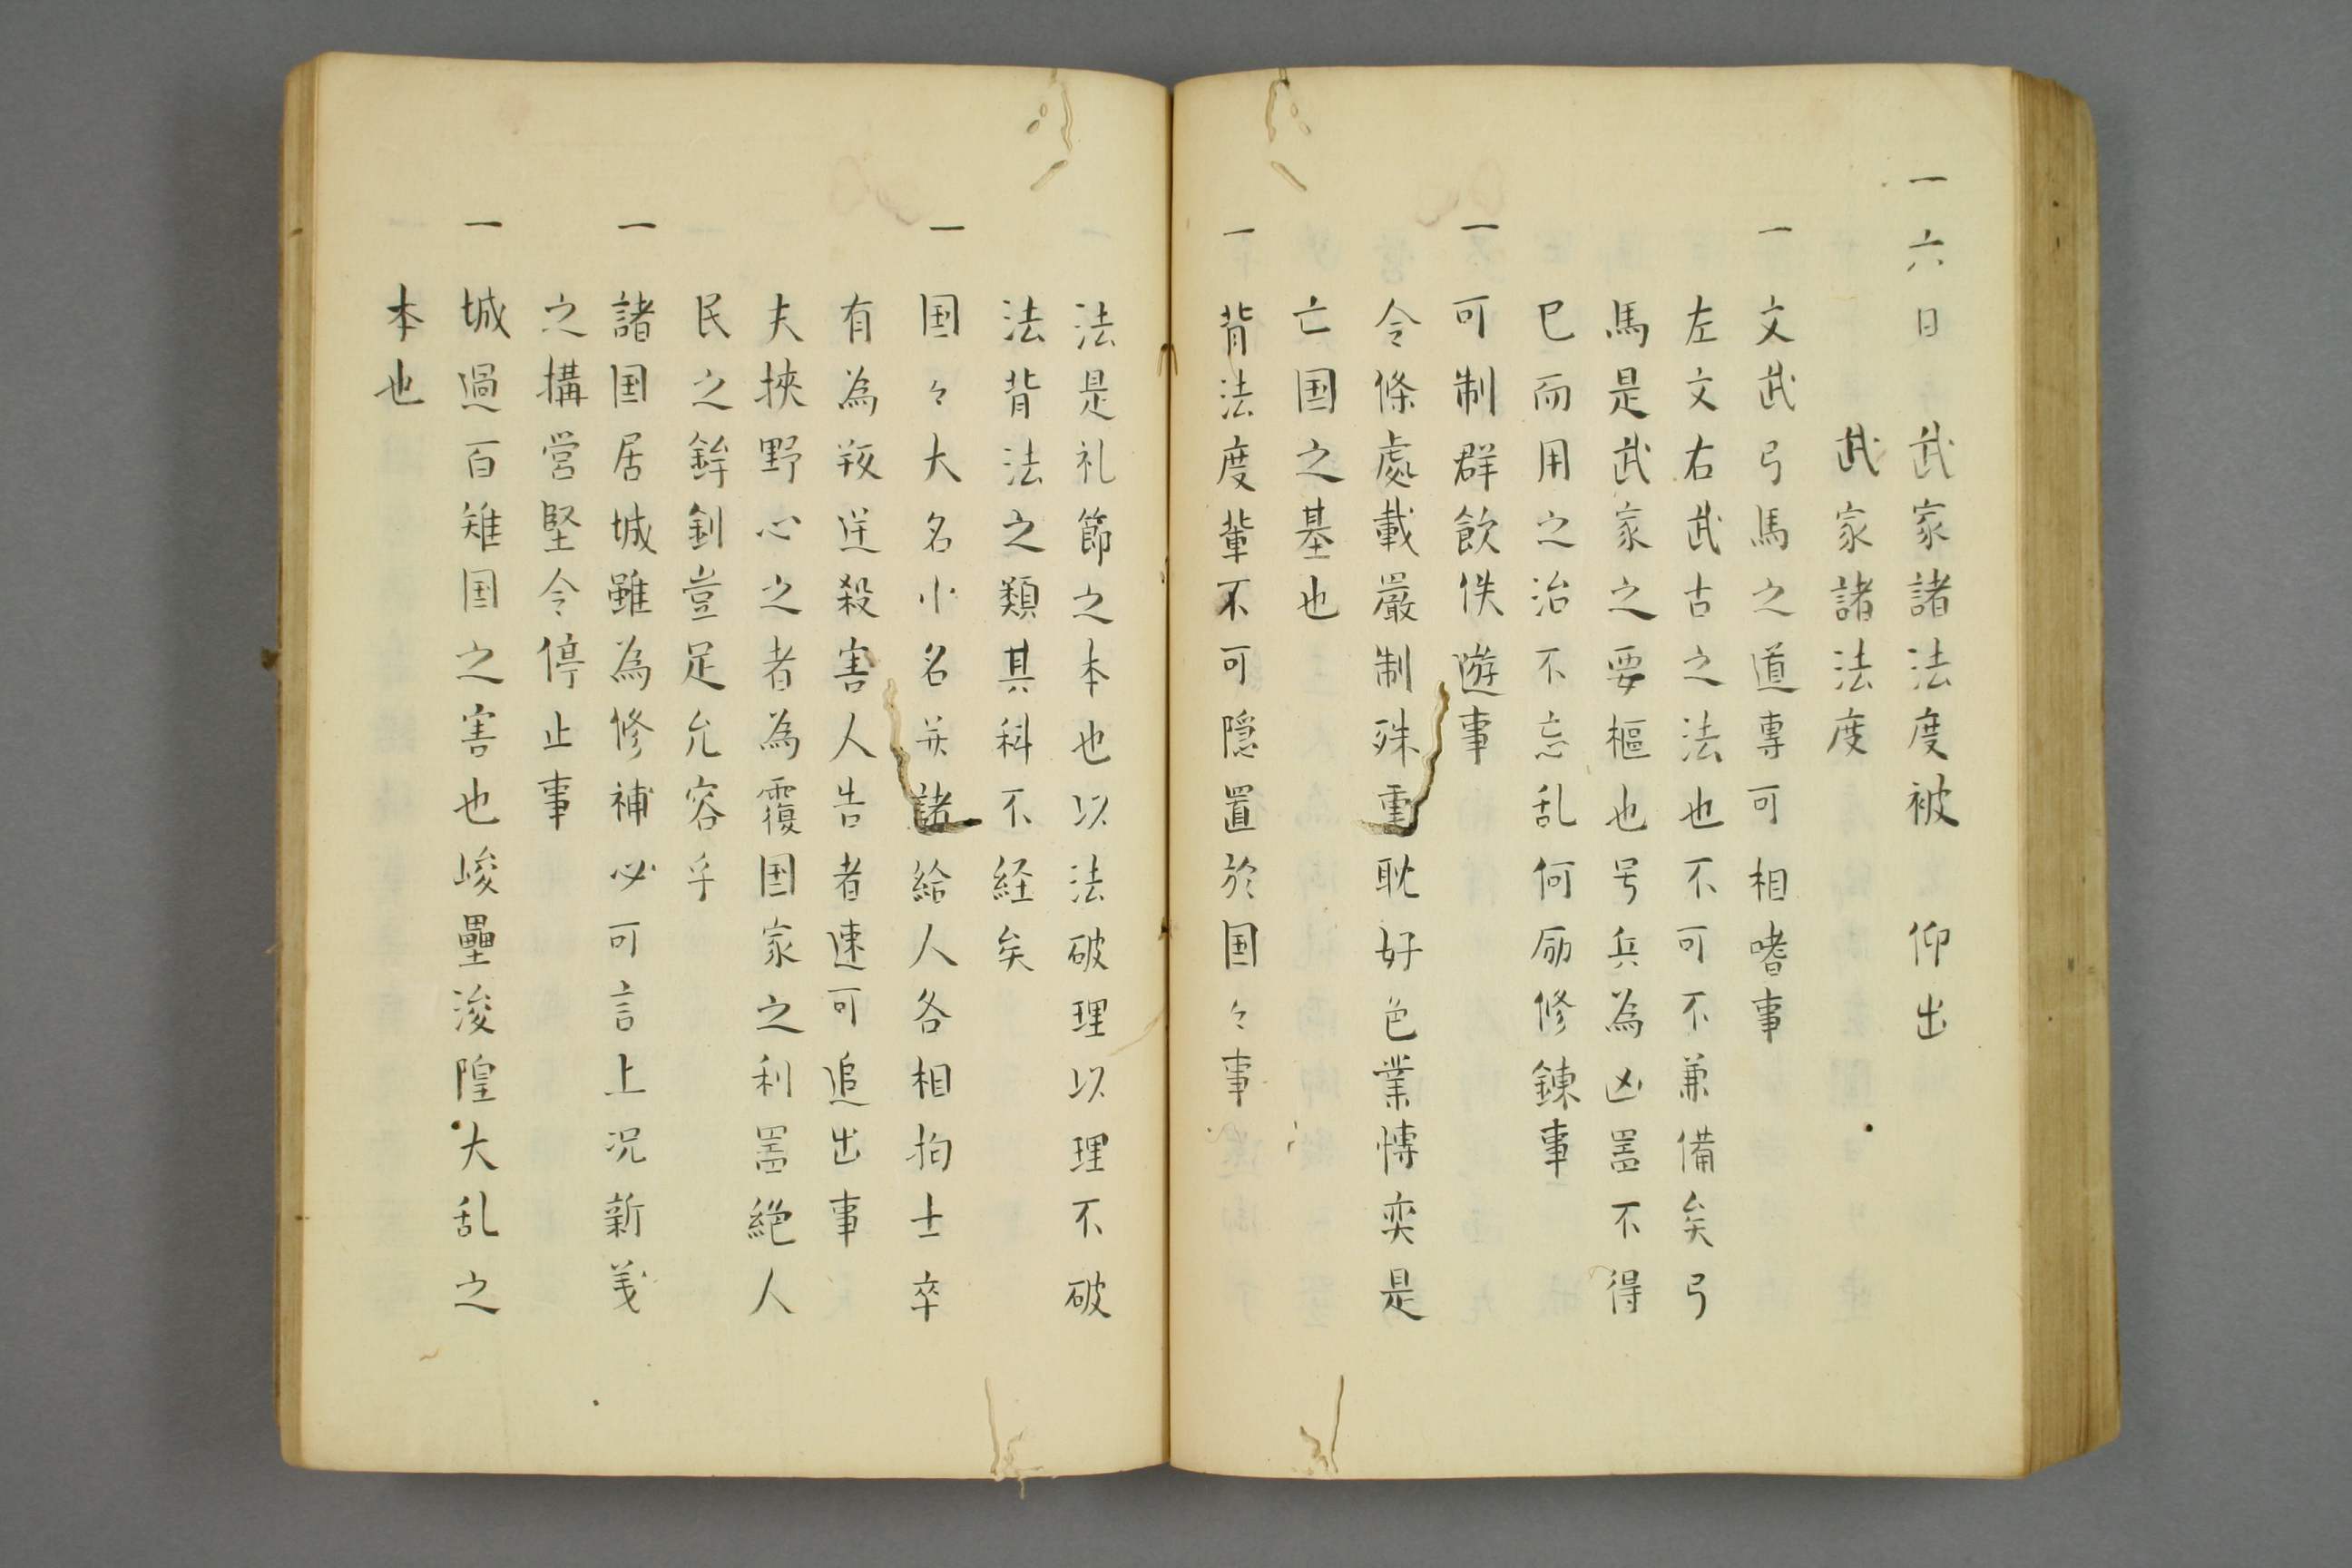 一六日　武家諸法度被　仰出
武家諸法度
一文武弓馬之道専可相嗜事
左文右武古之法也不可不兼備矣弓
馬是武家之要樞也号兵為凶噐不得
已而用之治不忘乱何励修錬事
一可制群飲佚遊事
令條處載嚴制殊重耽好色業博奕是
亡国之基也
一背法度輩不可隠置於国々事
法是礼節之本也以法破理以理不破
法背法之類其科不経矣
一国々大名小名并諸給人各相抱士卒
有為叛逆殺害人告者速可追出事
夫挾野心之者為覆国家之利噐絶人
民之鉾釼豈足允容乎
一諸国居城雖為修補必可言上况新義
之搆営堅令停止事
一城過百雉国之害也峻壘浚隍大乱之
本也